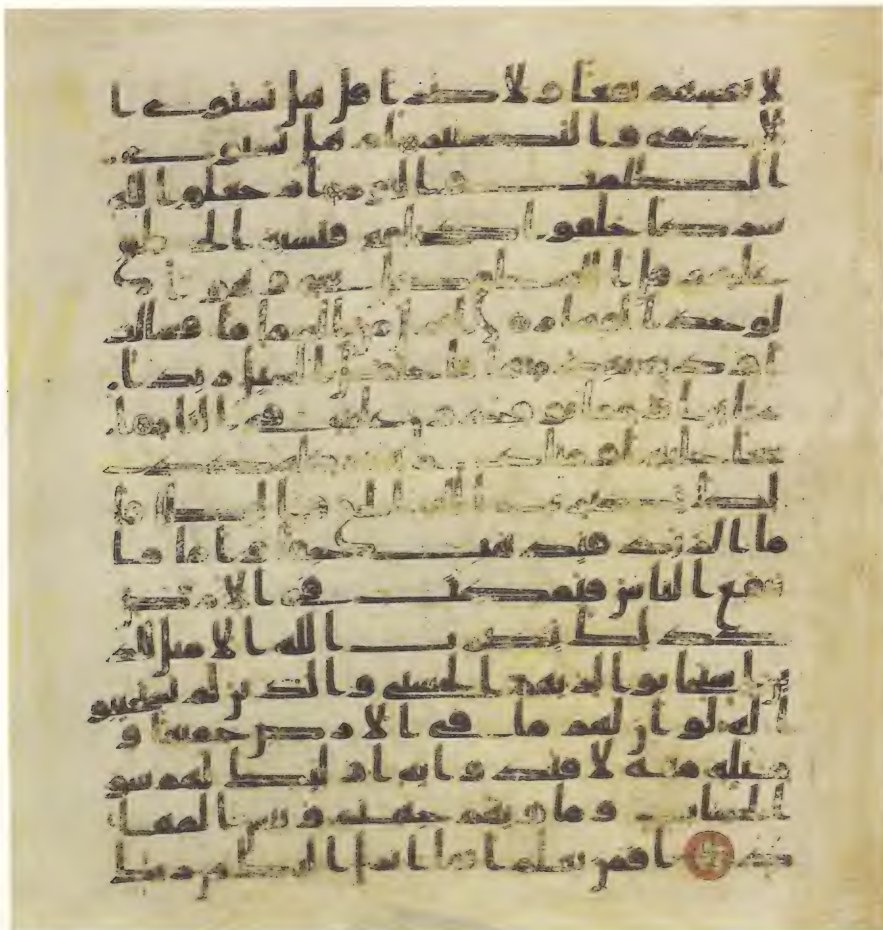 لانفسهم نفعا ولا ضرا قل هل يستوى ا
لاعمى والبصير ام هل تستوى
الظلمت والنور ام جعلوا لله
شركا خلقوا كخلقه فتشبه الخلق
عليهم قل الله خلق كل شى وهو ا
لوحد القهر انزل من السما ما فسالت
اودية بقدرها فاحتمل السيل زبدا
رابيا ومما يوقدون عليه فى النار ا
بتغا حلية او متع زبد مثله كذ
لك يضرب الله الحق والبطل فا
ما الزبد فيذهب جفا واما ما
ينفع الناس فيمكث فى الارض
كذلك يضرب الله الامثال للذ
ين استجابوا لربهم الحسنى والذين لم يستجيبو
ا له لو ان لهم ما فى الارض جميعا و
مثله معه لافتدوا به اوليك لهم سو
الحساب وماويهم جهنم وبيس المها
د افمن يعلم انما انزل اليك من ربك